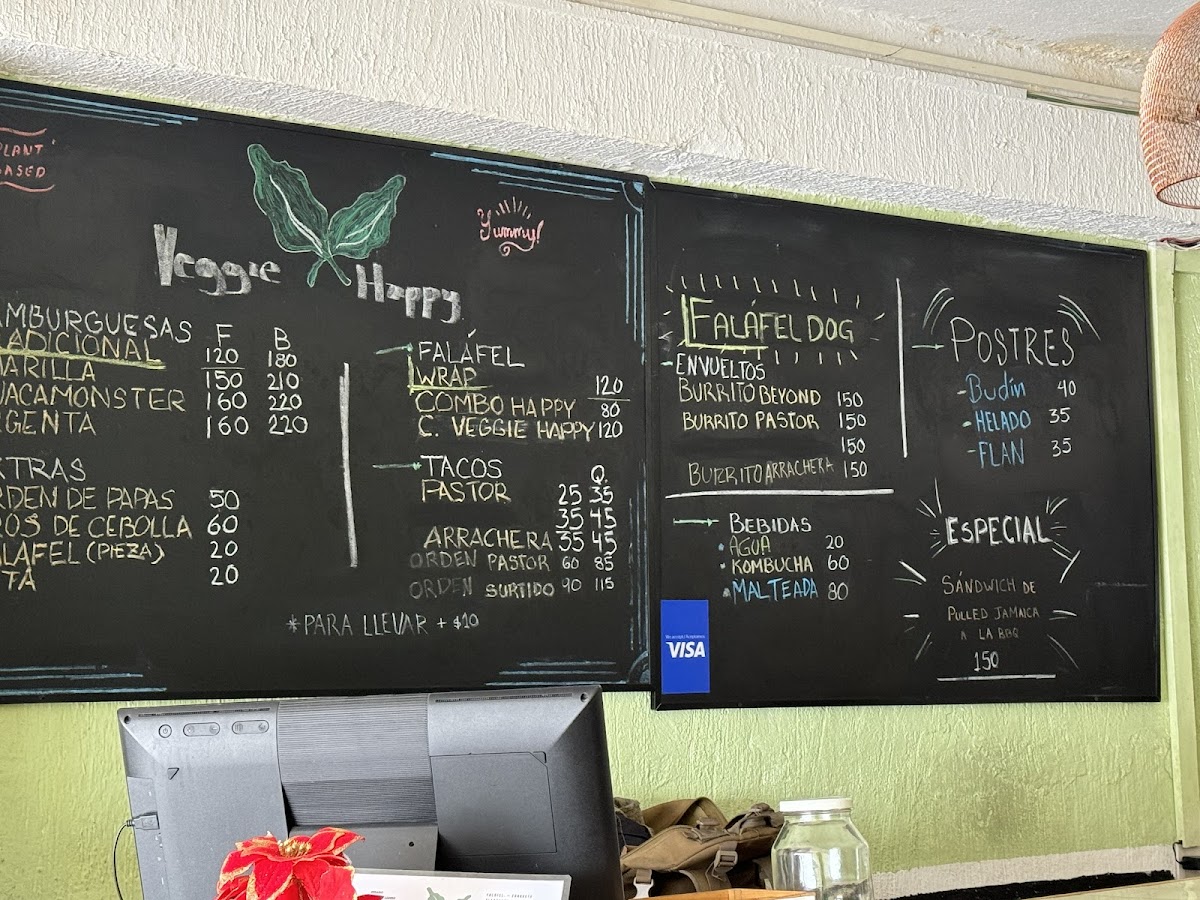 PLANT
BASED
Veggie Happy
Yummy!
HAMBURGUESAS F B
TRADICIONAL 120 180
AMARILLA 150 210
GUACAMONSTER 160 220
ARGENTA 160 220
EXTRAS
ORDEN DE PAPAS 50
AROS DE CEBOLLA 60
FALAFEL (PIEZA) 20
20
*PARA LLEVAR + $10
FALÁFEL
WRAP 120
COMBO HAPPY 80
C. VEGGIE HAPPY 120
TACOS Q.
PASTOR 25 35
35 45
ARRACHERA 35 45
ORDEN PASTOR 60 85
ORDEN SURTIDO 90 115
FALÁFEL DOG
ENVUELTOS
BURRITO BEYOND 150
BURRITO PASTOR 150
150
BURRITO ARRACHERA 150
BEBIDAS
AGUA 20
KOMBUCHA 60
MALTEADA 80
VISA
POSTRES
-Budín 40
-HELADO 35
-FLAN 35
ESPECIAL
SÁNDWICH DE
PULLED JAMAICA
A LA BBQ
150